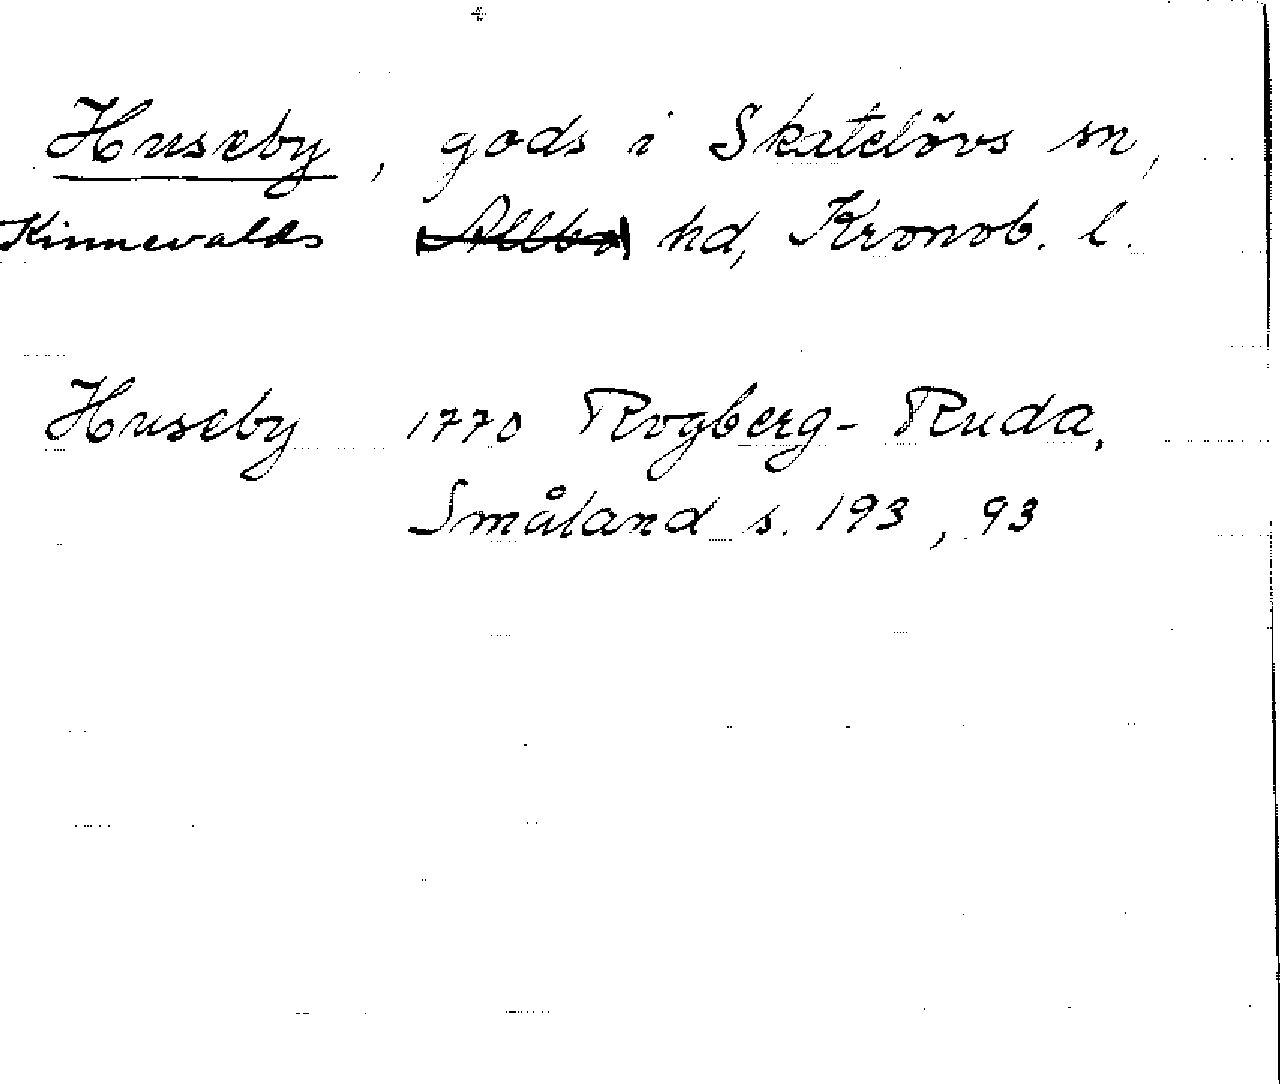 Huseby, gods i Skatelövs sn,
Kinnevalds Allbo hd, Kronob. l.
Huseby 1770 Rogberg-Ruda,
Småland s. 193, 93